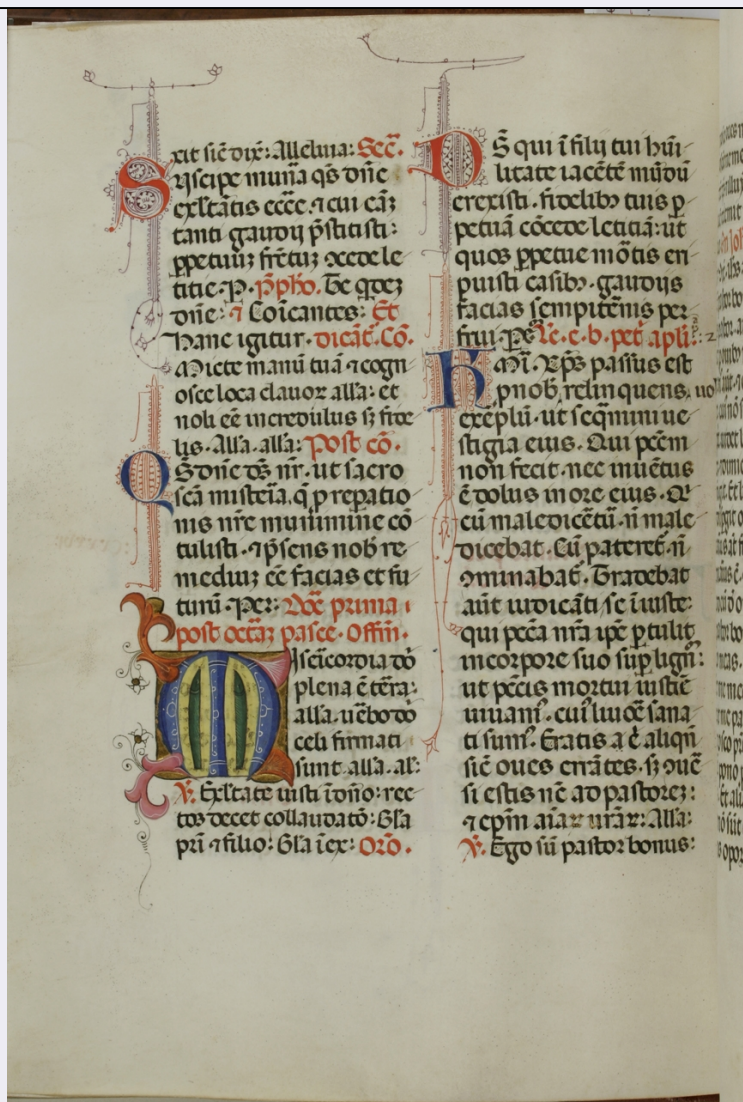 xit sic̄ dix̄: Alleluia: Sec̄.
Suscipe mun̄a q̄s dn̄e
exl̄tātis ecc̄e. ⁊ cui cāz
tanti gaudij p̄stitisti:
ꝑpetuuz fr̄ctuz ↄcede le
titie. P̱. p̄pho. Te q̱dez
dn̄e: ⁊ Coīcantes: Et
Hanc igitur. dicāt̄. Cō.
Micte manū tuā ⁊ cogn
osce loca clauoꝝ all'a: et
noli ee͞ incredulus sꝫ fide
lis. All'a. all'a: Post cō.
QS dn̄e ds̄ nr̄. ut sacro
scā mist̄ia. q̱ ꝓ repatio
nis nr̄e munimine cō
tulisti. ⁊ p̄sens nob̄ re
mediuz ee͞ facias et fu
turū. Per: Dōe prima
post octāz pasce. Offm̄.
Misc̄icordia dō
plena ē t̄ra:
all'a. u̇ebo dō
celi firmati
sunt. all'a. al':
℣. Exl̄tate iusti ī dn̄o: rec
tos decet collaudatō: Gl'a
pr̄i ⁊ filio: Gl'a ī ex: Orō.
DS̄ qui ī filij tui hūi
litate iacētē mūdū
erexisti. fidelibꝰ tuis ꝑ
petuā cōcede letitiā: ut
quos ꝑpetue mōtis eri
puisti casibꝰ. gaudijs
facias sempit̄nis per
frui. P̱. Lc̄. e. b. pet̄ apl̄i:
Kmi. Xp̄s passus est
ꝓ nob̄. relinquens. uo
exeplū. ut seq̄mini ue
stigia eius. Qui pc̄cm
non fecit. nec inuētus
ē dolus in ore eius. Q̱
cū maledicet̄ū. n̄ male
dicebat. Cū pateret̄. n̄
ↄminabat̄. Tradebat
aūt iudicāti se īiuste:
qui pecā nr̄a ip̄e ꝑtulit
in corpore suo suꝑ lignū:
ut pc̄cis mortui iustic̄
uiuam̄. cuī liuoē sana
ti sum̄. Eratis a ē aliqn̄
sic̄ oues errātes. sꝫ ↄuē
si estis nc̄ ad pastorez:
⁊ ep̄m aīaꝝ ur̄aꝝ: All'a:
℣. Ego sū pastor bonus: